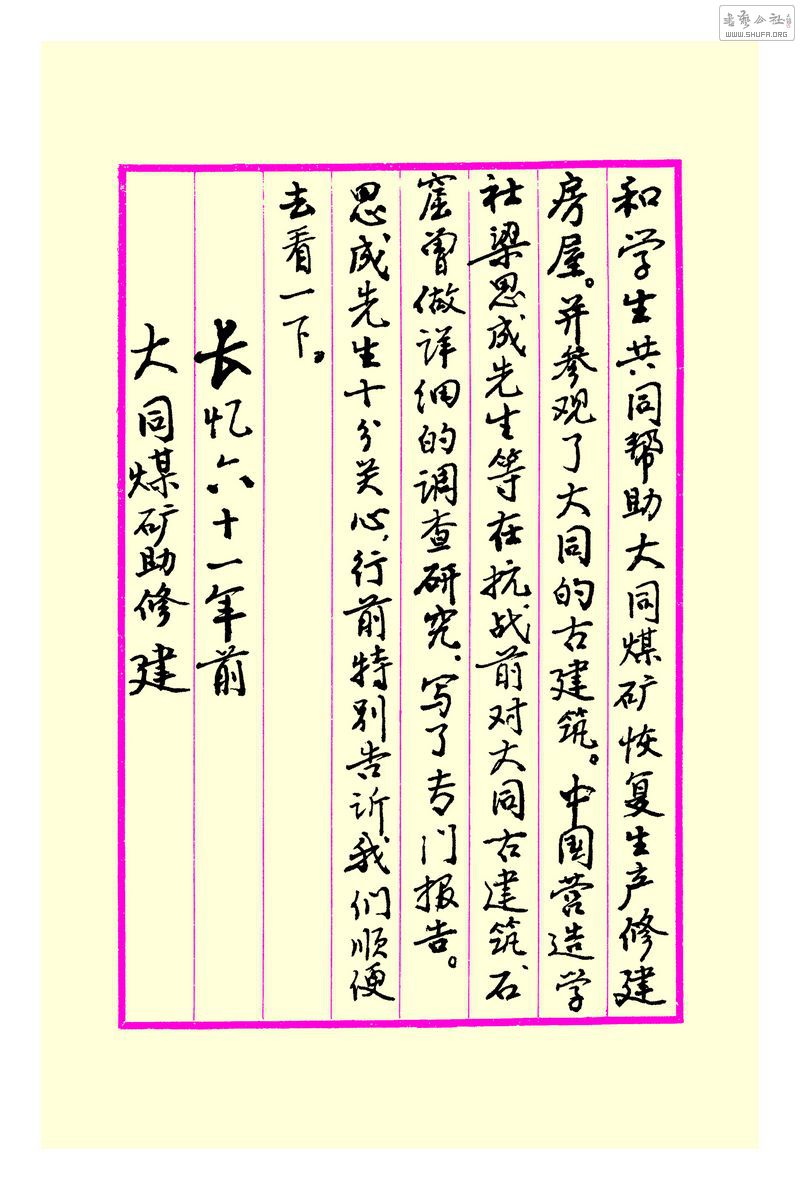 和学生共同帮助大同煤矿恢复生产修建
房屋。并参观了大同的古建筑。中国营造学
社梁思成先生等在抗战前对大同古建筑石
窟曾做详细的调查研究、写了专门报告。
思成先生十分关心,行前特别告诉我们顺便
去看一下。
长忆六十一年前
大同煤矿助修建
書藝公社
WWW.SHUFA.ORG